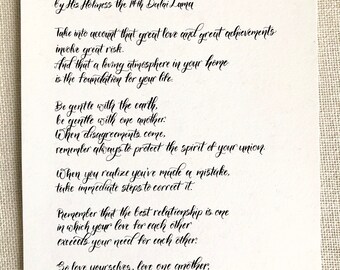 by His Holiness the 14th Dalai Lama
Take into account that great love and great achievements
involve great risk.
And that a loving atmosphere in your home
is the foundation for your life.
Be gentle with the earth,
be gentle with one another.
When disagreements come,
remember always to protect the spirit of your union.
When you realize you've made a mistake,
take immediate steps to correct it.
Remember that the best relationship is one
in which your love for each other
exceeds your need for each other.
So love yourselves, love one another,